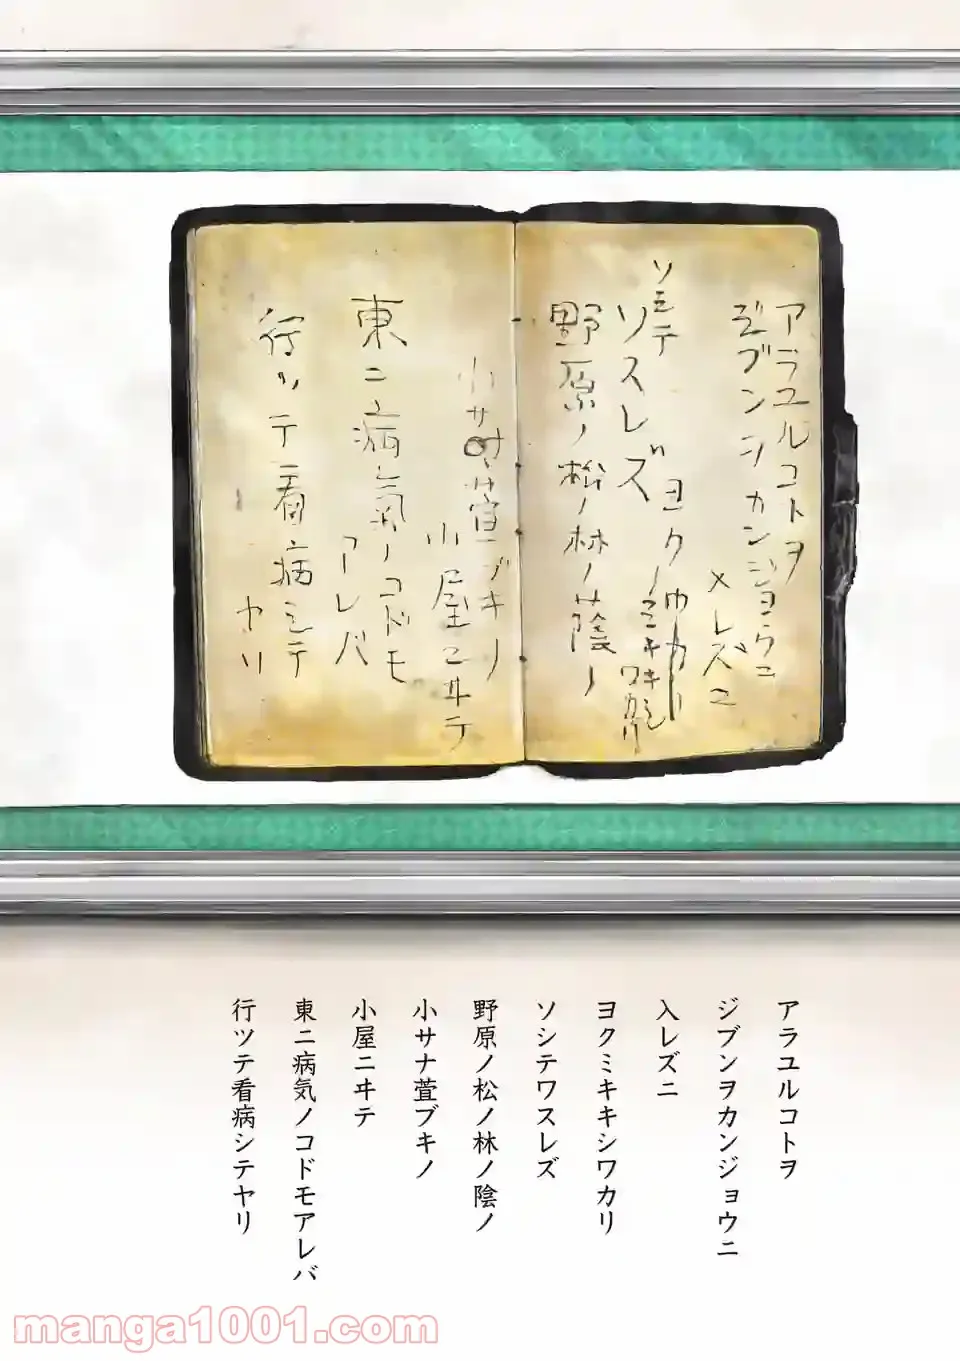 アラユルコトヲ
ヂブンヲカンジョウニ
入レズニ
ヨクミキキシワカリ
ソシテ
ワスレズ
野原ノ松ノ林ノ蔭ノ
小サナ萱ブキノ
小屋ニヰテ
東ニ病氣ノコドモ
アレバ
行ッテ看病シテ
ヤリ
アラユルコトヲ
ジブンヲカンジョウニ
入レズニ
ヨクミキキシワカリ
ソシテワスレズ
野原ノ松ノ林ノ陰ノ
小サナ萱ブキノ
小屋ニヰテ
東ニ病気ノコドモアレバ
行ツテ看病シテヤリ
manga1001.com